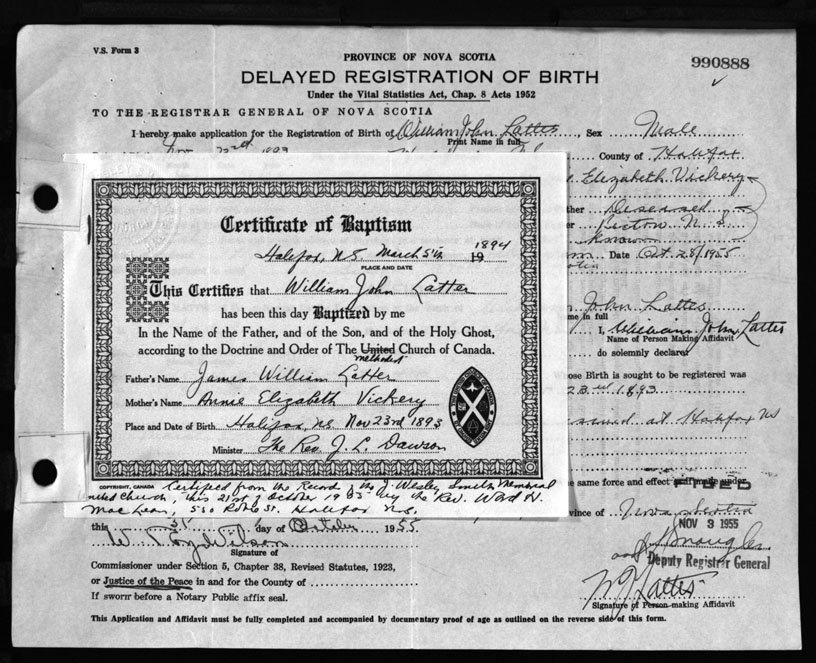 V.S. Form 3
PROVINCE OF NOVA SCOTIA
990888
DELAYED REGISTRATION OF BIRTH
Under the Vital Statistics Act, Chap. 8 Acts 1952
TO THE REGISTRAR GENERAL OF NOVA SCOTIA
I hereby make application for the Registration of Birth of William John Lattes, Sex Male
Print Name in full
County of Halifax
Elizabeth Vickery
ther Deceased
Pictou N.S.
Date Oct. 28/1955
John Lattes
me in full
I, William John Lattes
Name of Person Making Affidavit
do solemnly declare
hose Birth is sought to be registered was
23rd 1893
at Halifax NS
he same force and effect as if made under
FILED
vince of Nova Scotia
NOV 3 1955
Deputy Registrar General
W J Lattes
Signature of Person making Affidavit
Certificate of Baptism
Halifax, N.S. March 5th 19 1894
PLACE AND DATE
This Certifies that William John Latter
has been this day Baptized by me
In the Name of the Father, and of the Son, and of the Holy Ghost,
according to the Doctrine and Order of The United Church of Canada.
methodist
Father's Name James William Latter
Mother's Name Annie Elizabeth Vickery
Place and Date of Birth Halifax, N.S. Nov 23rd 1893
Minister The Rev. J. L. Dawson
COPYRIGHT, CANADA
Certified from the Records of the J. Wesley Smith Memorial
United Church, this 21st of October 1955 by the Rev. Ward H.
MacLean, Robie St. Halifax N.S.
this 31 day of October 1955
Signature of
Commissioner under Section 5, Chapter 38, Revised Statutes, 1923,
or Justice of the Peace in and for the County of
If sworn before a Notary Public affix seal.
This Application and Affidavit must be fully completed and accompanied by documentary proof of age as outlined on the reverse side of this form.